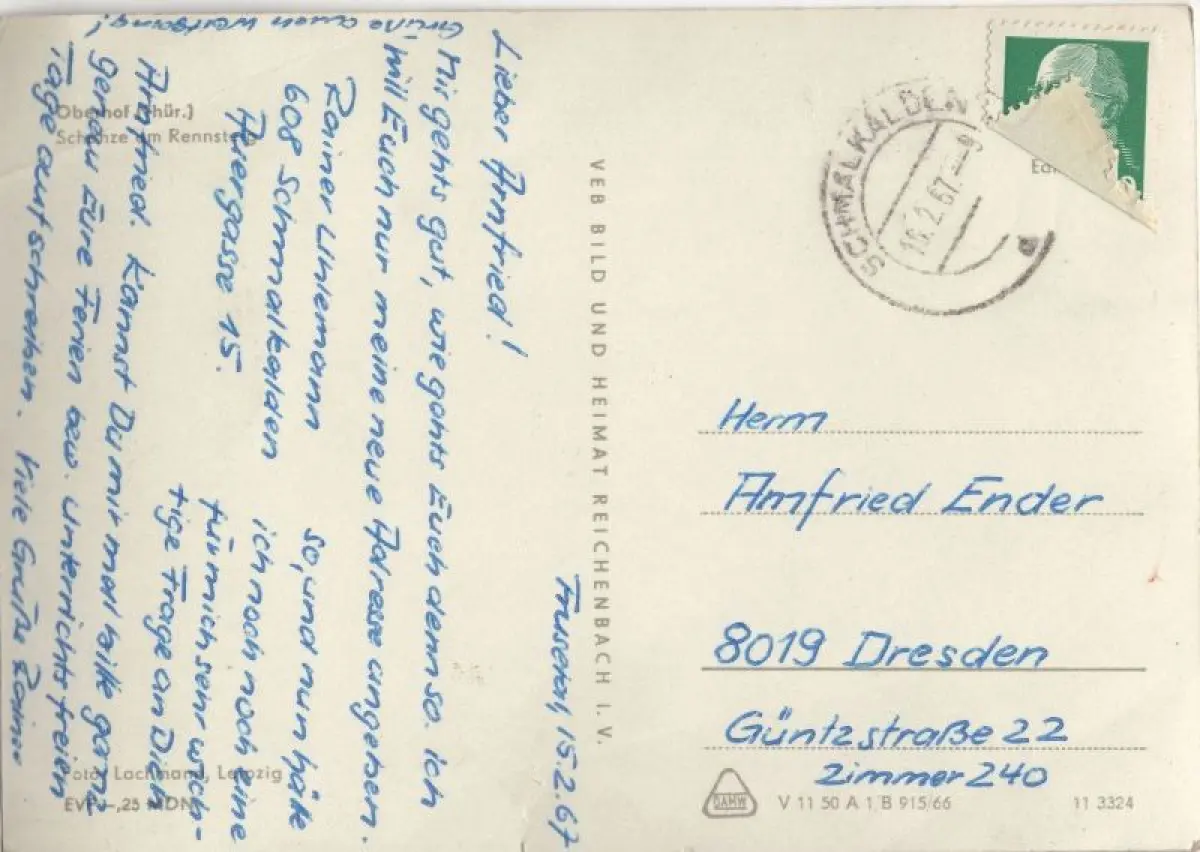 Trusetal, 15.2.67
Lieber Arnfried!
Mir gehts gut, wie gehts Euch denn so. ich
will Euch nur meine neue Adresse angeben.
Rainer Uhlemann
608 Schmalkalden
Auergasse 15.
so, und nun hätte
ich noch noch eine
für mich sehr wich-
tige Frage an Dich
Arnfried. Kannst Du mir mal bitte ganz
genau Eure Ferien bzw. unterrichtsfreien
Tage aufschreiben. Viele Grüße Rainer
Grüße auch Wolfgang!
Oberhof (Thür.)
Schanze am Rennsteig
Foto: Lachmann, Leipzig
EVP -,25 MDN
VEB BILD UND HEIMAT REICHENBACH I. V.
SCHMALKALDEN
16.2.67
Herrn
Arnfried Ender
8019 Dresden
Güntzstraße 22
Zimmer 240
DAMW
V 11 50 A 1/B 915/66
11 3324